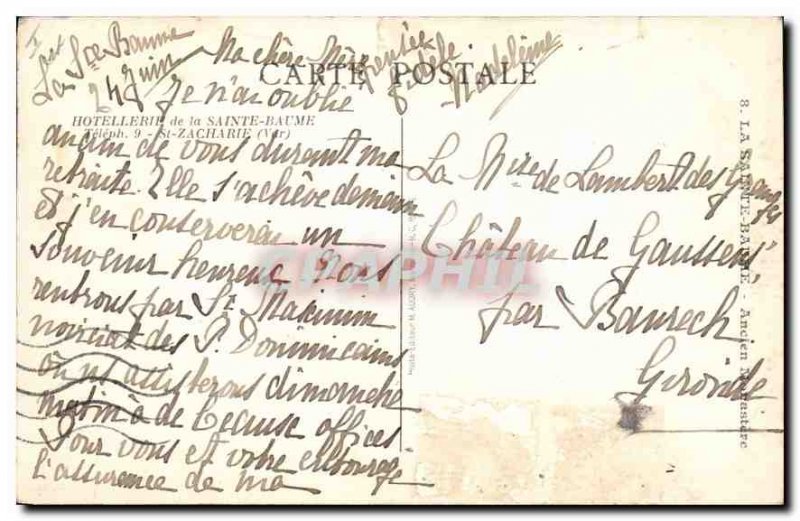 La Ste Baume
24 Juin
Ma chère
CARTE POSTALE
Je n'ai oublié
HOTELLERIE de la SAINTE-BAUME
Téléph. 9 - St-ZACHARIE (Var)
aucun de vous durant ma
retraite. Elle s'achève demain
et j'en conserverai un
souvenir heureux Nous
rentrons par St Maximin
noviciat des P. Dominicains
où ns assisterons dimanche
matin à de beaux offices
Pour vous et votre entourage
l'assurance de ma
fidèle
Madeleine
La Mise de Lambert des Granges
Château de Gaussens
par Baurech
Gironde
8. LA SAINTE-BAUME - Ancien Monastère